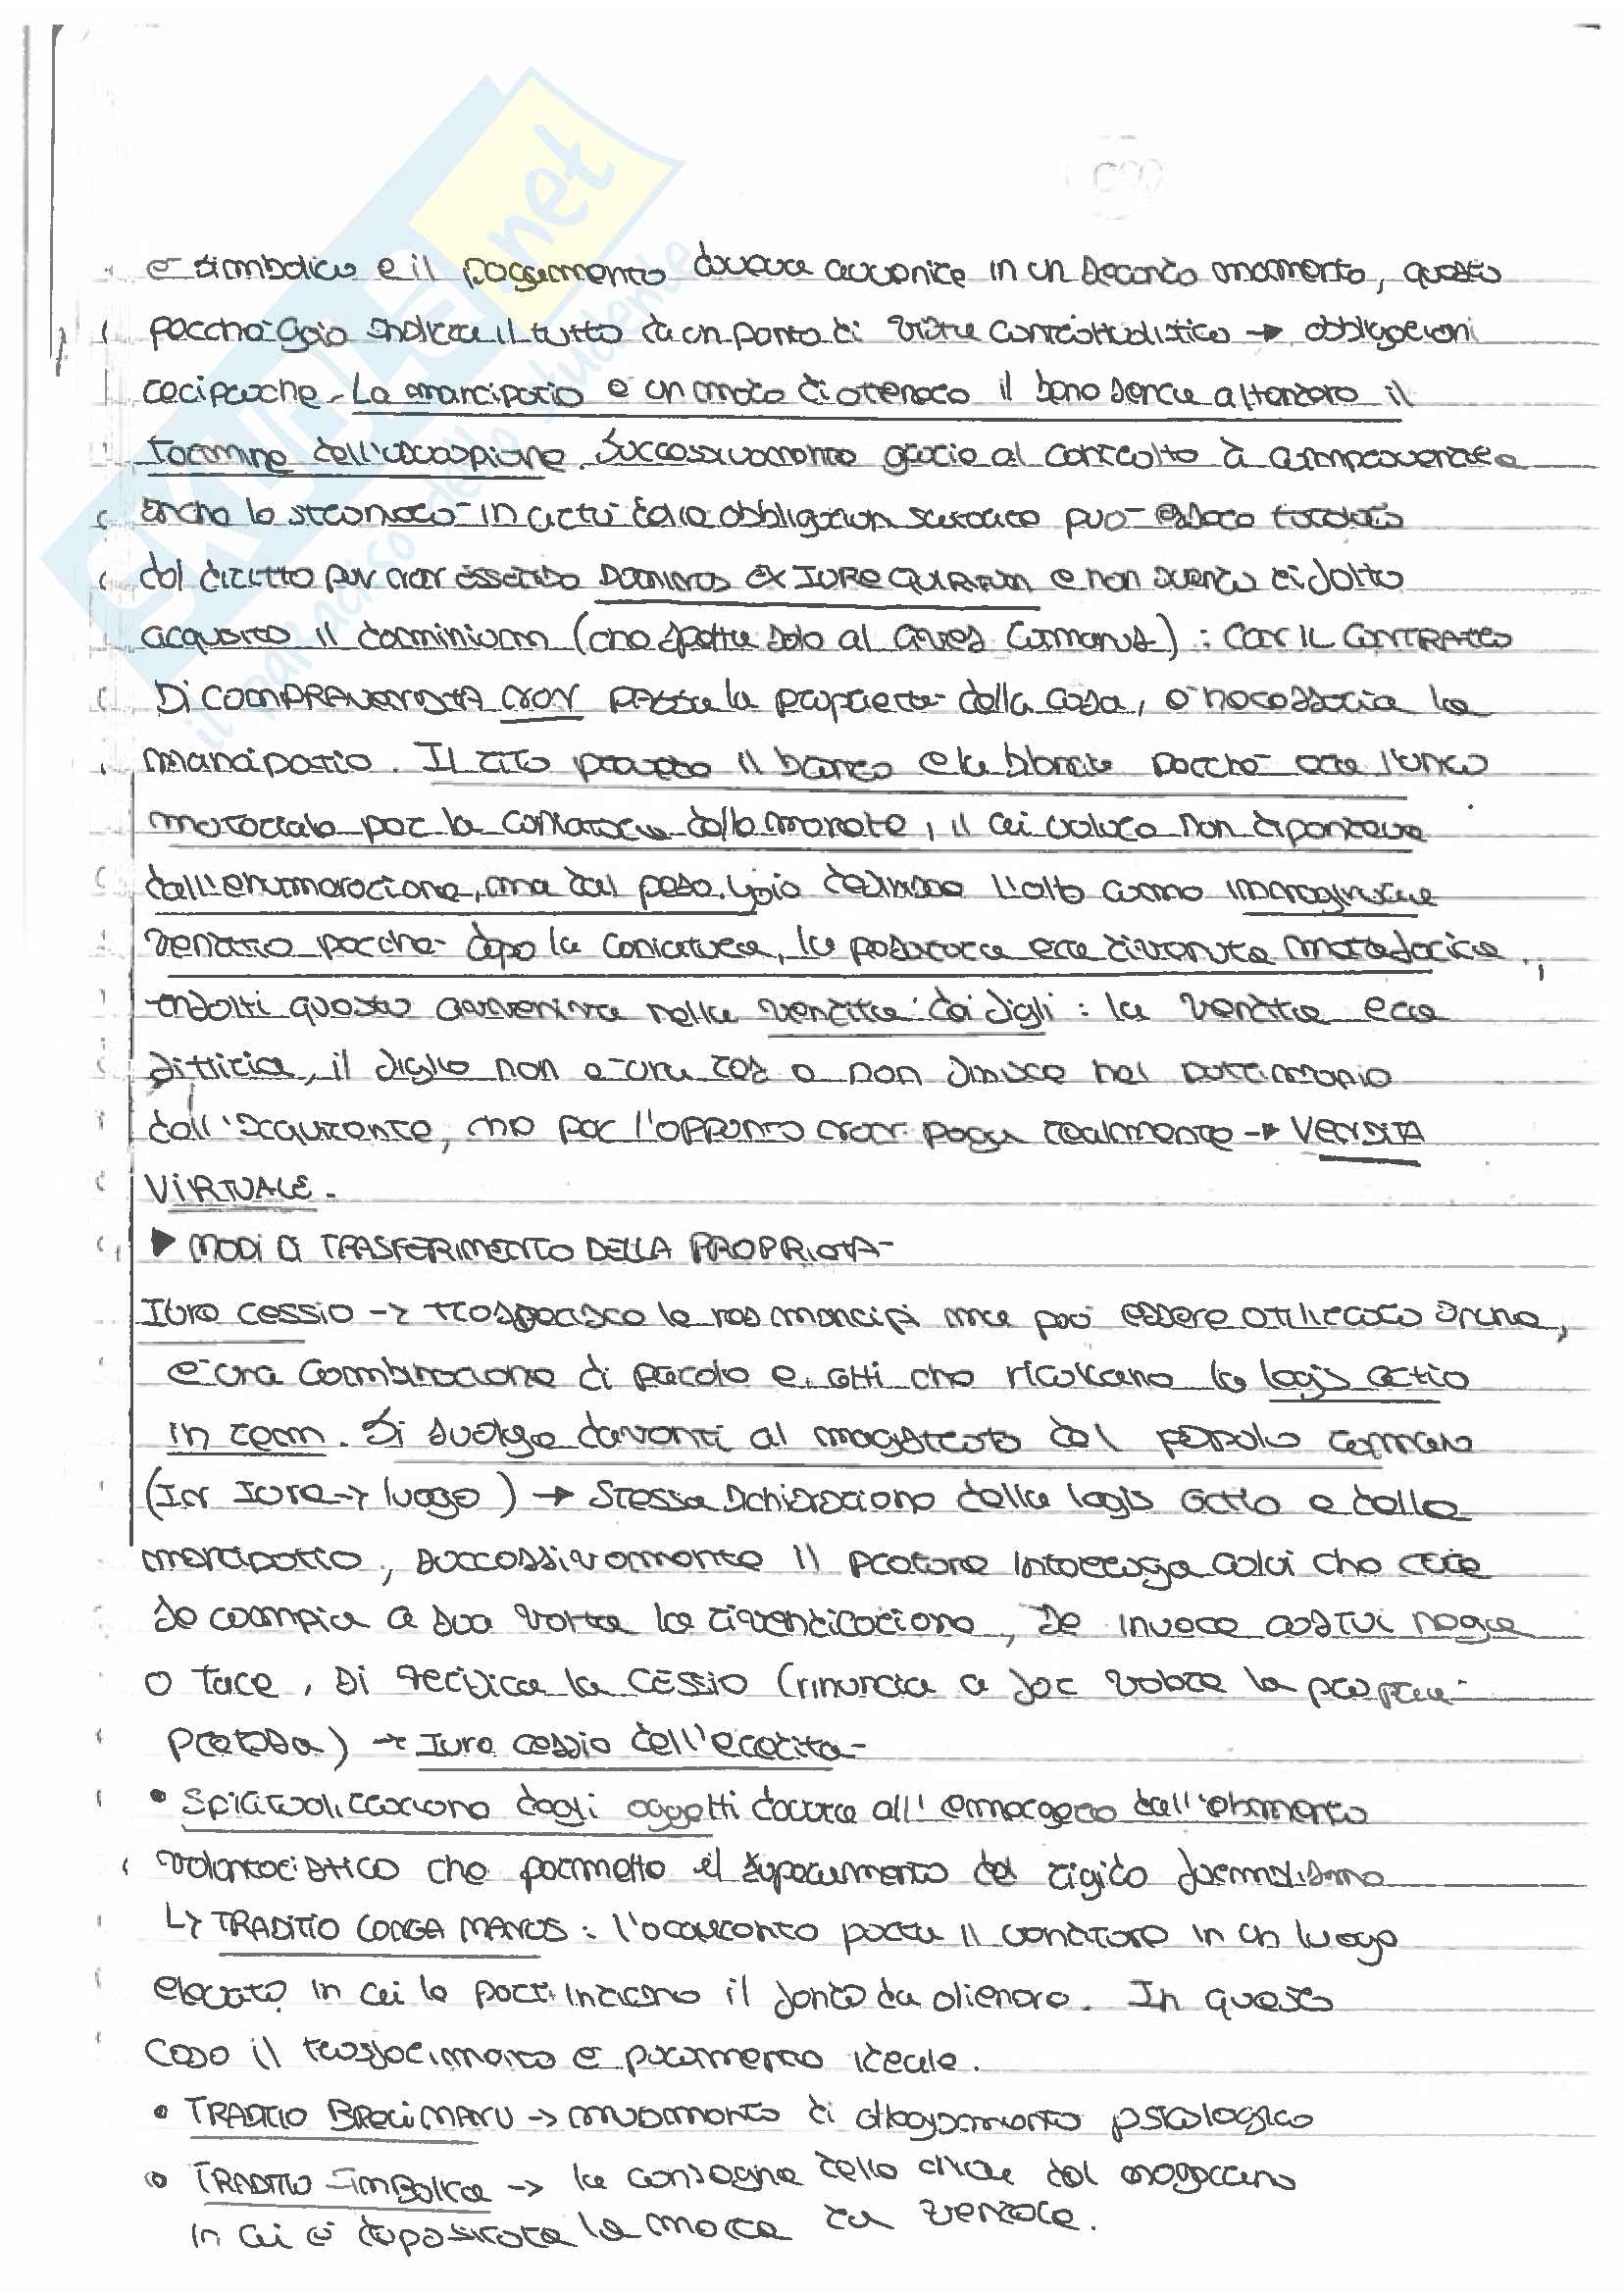 SKUOLA.net
il paradiso dello studente
è simbolico e il pagamento doveva avvenire in un secondo momento, questo
perché Gaio indica il tutto da un punto di vista contrattualistico → obbligazioni
reciproche. La mancipatio è un modo di ottenere il bene senza attendere il
termine dell'usucapione. Successivamente grazie al contratto di compravendita
anche lo straniero in virtù delle obbligazioni può essere tutelato
dal diritto pur non essendo DOMINUS EX IURE QUIRITIUM e non avendo di fatto
acquisito il dominium (che spetta solo al cives romanus) : CON IL CONTRATTO
DI COMPRAVENDITA NON PASSA la proprietà della cosa, è necessaria la
mancipatio. Il rito prevede il bronzo e la bilancia perché era l'unico
materiale per la coniatura della moneta, il cui valore non dipendeva
dall'enumerazione, ma dal peso. Gaio definisce l'atto come imaginaria
venditio perché dopo la coniatura, la pesatura era divenuta metaforica.,
infatti questo avveniva nella vendita dei figli : la vendita era
fittizia, il figlio non è una res e non finisce nel patrimonio
dell'acquirente, che per l'appunto non paga realmente → VENDITA
VIRTUALE.
▶ MODI DI TRASFERIMENTO DELLA PROPRIETÀ
Iure cessio → trasferisce le res mancipi ma può essere utilizzato
è una combinazione di parole e atti che ricalcano la legis actio
in rem. Si svolge davanti al magistrato del popolo romano
(In Iure → luogo) → Stessa dichiarazione della legis actio e della
mancipatio, successivamente il pretore interroga colui che cede
se compia a sua volta la rivendicazione, se invece costui nega
o tace, si verifica la cessio (rinuncia a far valere la propria
pretesa) → Iure cessio dell'eredità
• Spiritualizzazione degli oggetti dovuta all'emergere dell'elemento
volontaristico che permette il superamento del rigido formalismo
↳ TRADITIO LONGA MANUS : l'acquirente porta il venditore in un luogo
elevato in cui le parti indicano il fondo da alienare. In questo
caso il trasferimento è puramente ideale.
• TRADITIO BREVI MANU → mutamento di atteggiamento psicologico
• TRADITIO SIMBOLICA → la consegna delle chiavi del magazzino
in cui è depositata la merce da vendere.